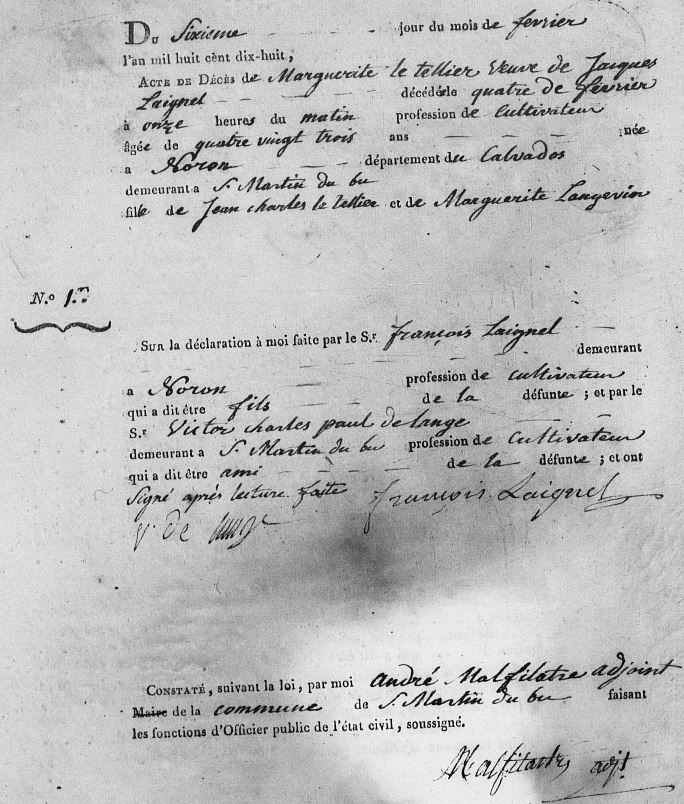 Du Sixieme jour du mois de fevrier
l'an mil huit cent dix-huit,
Acte de Décès de Marguerite le tellier Veuve de Jacques
Laignel décédéele quatre de fevrier
à onze heures du matin profession de Cultivateur
âgée de quatre vingt trois ans née
a Noron département du Calvados
demeurant a St. Martin du bu
fille de Jean charles le tellier et de Marguerite Langevin
N.o 1.er
Sur la déclaration à moi faite par le S.r françois Laignel
demeurant
a Noron profession de cultivateur
qui a dit être fils de la défunte ; et par le
S.r Victor charles paul de lange
demeurant a St. Martin du bu profession de Cultivateur
qui a dit être ami de la défunte ; et ont
Signé après lecture faite françois Laignel
V. de lange
Constaté, suivant la loi, par moi andré Malfilatre adjoint
Maire de la commune de St. Martin du bu faisant
les fonctions d'Officier public de l'état civil, soussigné.
Malfilatre adjt